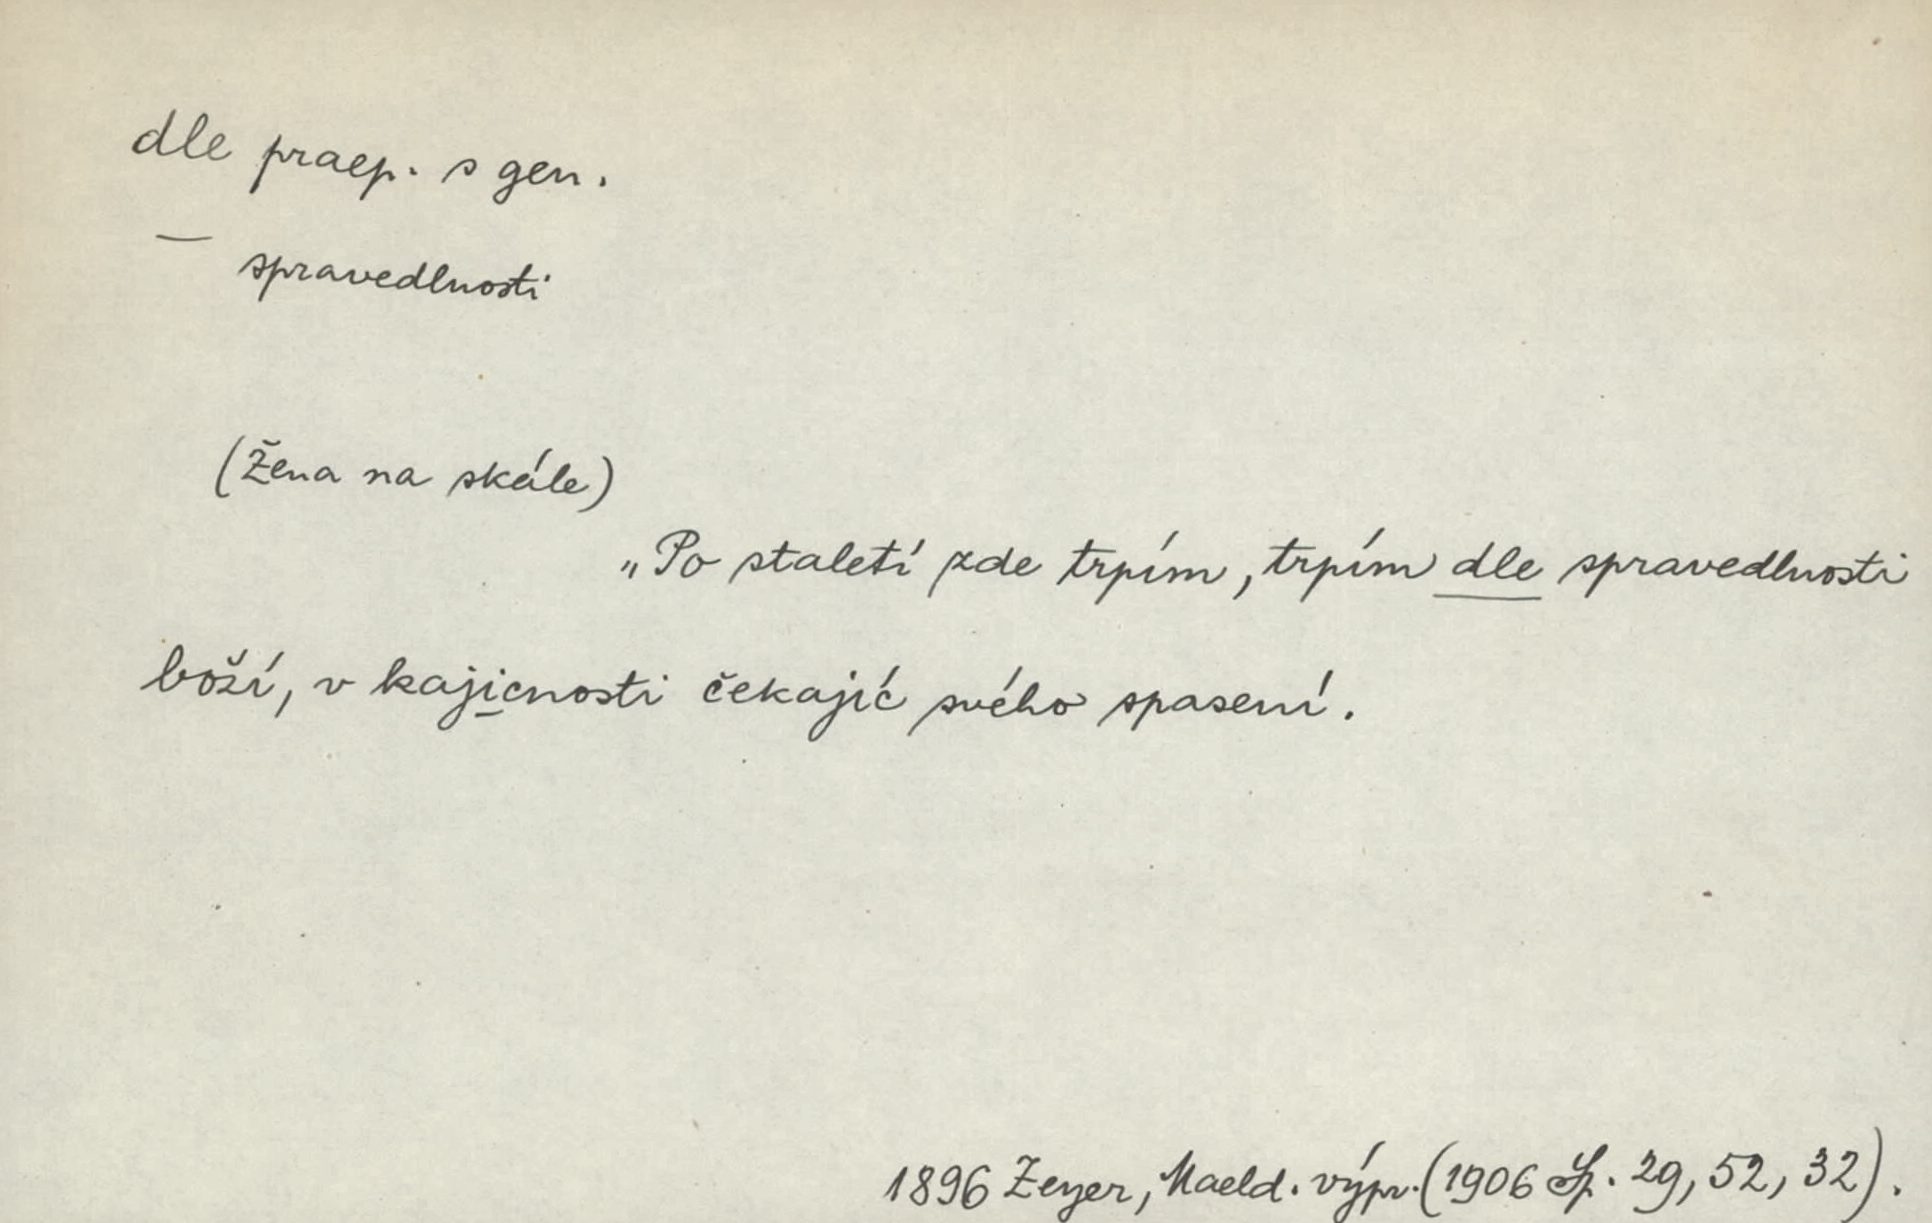 dle praep. s gen.
— spravedlnosti
(Žena na skále)
„Po staletí zde trpím, trpím dle spravedlnosti
boží, v kajicnosti čekajíc svého spasení.
1896 Zeyer, Maeld. výpr. (1906 Sp. 29, 52, 32).